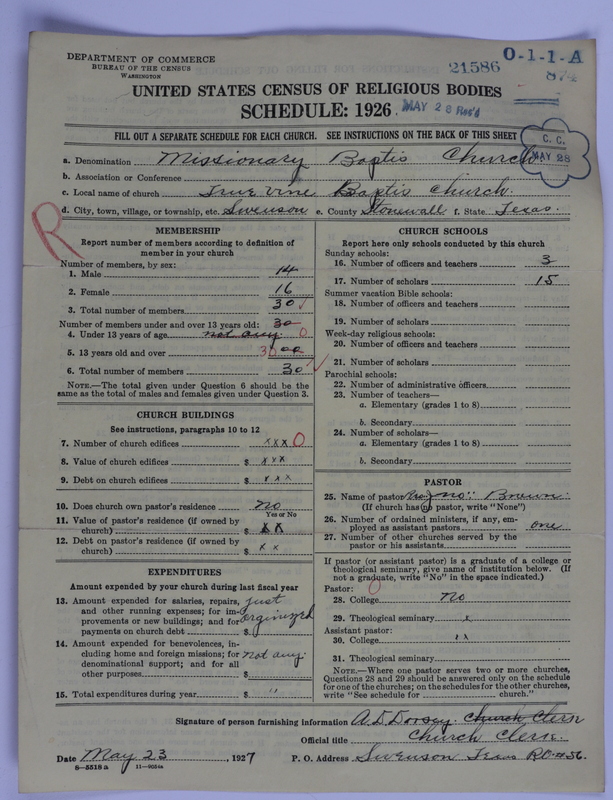 DEPARTMENT OF COMMERCE
BUREAU OF THE CENSUS
WASHINGTON
21586
O-1-1-A
874
UNITED STATES CENSUS OF RELIGIOUS BODIES
SCHEDULE: 1926
MAY 28 Rec'd
FILL OUT A SEPARATE SCHEDULE FOR EACH CHURCH. SEE INSTRUCTIONS ON THE BACK OF THIS SHEET
C. C.
MAY 28
a. Denomination Missionary Baptis Church
b. Association or Conference
c. Local name of church True vine Baptis church.
d. City, town, village, or township, etc. Swenson e. County Stonewall f. State Texas.
R
MEMBERSHIP
Report number of members according to definition of
member in your church
Number of members, by sex:
1. Male 14
2. Female 16
3. Total number of members 30
Number of members under and over 13 years old: 30
4. Under 13 years of age not any 0
5. 13 years old and over 30
6. Total number of members 30
NOTE.—The total given under Question 6 should be the
same as the total of males and females given under Question 3.
CHURCH BUILDINGS
See instructions, paragraphs 10 to 12
7. Number of church edifices xxx 0
8. Value of church edifices $ xxx
9. Debt on church edifices $ xxx
10. Does church own pastor's residence? no
Yes or No
11. Value of pastor's residence (if owned by
church) $ xx
12. Debt on pastor's residence (if owned by
church) $ xx
EXPENDITURES
Amount expended by your church during last fiscal year
13. Amount expended for salaries, repairs, just
and other running expenses; for im-
provements or new buildings; and for orginized
payments on church debt $
14. Amount expended for benevolences, in-
cluding home and foreign missions; for not any.
denominational support; and for all
other purposes $
15. Total expenditures during year $ "
CHURCH SCHOOLS
Report here only schools conducted by this church
Sunday schools:
16. Number of officers and teachers 3
17. Number of scholars 15
Summer vacation Bible schools:
18. Number of officers and teachers
19. Number of scholars
Week-day religious schools:
20. Number of officers and teachers
21. Number of scholars
Parochial schools:
22. Number of administrative officers
23. Number of teachers—
a. Elementary (grades 1 to 8)
b. Secondary
24. Number of scholars—
a. Elementary (grades 1 to 8)
b. Secondary
PASTOR
25. Name of pastor Brown
(If church has no pastor, write "None")
26. Number of ordained ministers, if any, em-
ployed as assistant pastors one
27. Number of other churches served by the
pastor or his assistants
If pastor (or assistant pastor) is a graduate of a college or
theological seminary, give name of institution below. (If
not a graduate, write "No" in the space indicated.)
Pastor: 0
28. College no
29. Theological seminary x
Assistant pastor:
30. College xx
31. Theological seminary
NOTE.—Where one pastor serves two or more churches,
Questions 28 and 29 should be answered only on the schedule
for one of the churches; on the schedules for the other churches,
write "See schedule for church."
Signature of person furnishing information A. D. Dorsey. Church Clerk
Official title Church Clerk.
Date May 23, 1927 P. O. Address Swenson Texas
8—5518 a 11—9054a